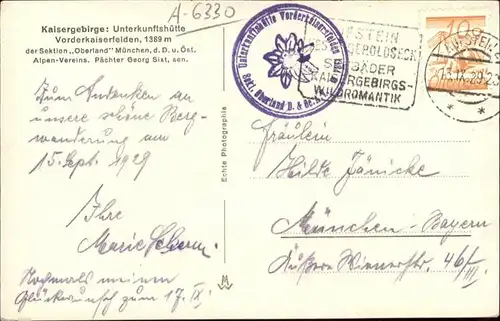 A-6330
Kaisergebirge: Unterkunftshütte
Vorderkaiserfelden, 1389 m
der Sektion „Oberland" München, d. D. u. Öst.
Alpen-Vereins. Pächter Georg Sixt, sen.
Unterkunftshütte Vorderkaiserfelden
Sekt. Oberland D. & Oe.
FSTEIN
GEROLDSECK
BÄDER
KAISERGEBIRGS-
WILDROMANTIK
10
KUFSTEIN
Echte Photographie
Zum Andenken an
unsere schöne Berg-
wanderung am
15. Sept. 1929
Ihre
Marie
Nochmals meinen
Glückwunsch zum 17. IX.
Fräulein
Hilde Jänicke
München-Bayern
Äußere Wienerstr. 46/III.